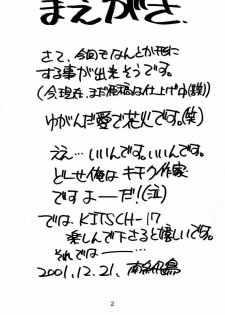 まえがき、
さて、今回もなんとか形に
する事が出来そうです。
(今現在、まだ原稿は仕上げ中(爆))
ゆがんだ愛で花火です。(笑)
ええ…いいんです。いいんです。
どーせ俺はキチク作家
ですよーだ!(泣)
では、KITSCH-17
楽しんで下さると嬉しいです。
それでは——…
2001.12.21,
2